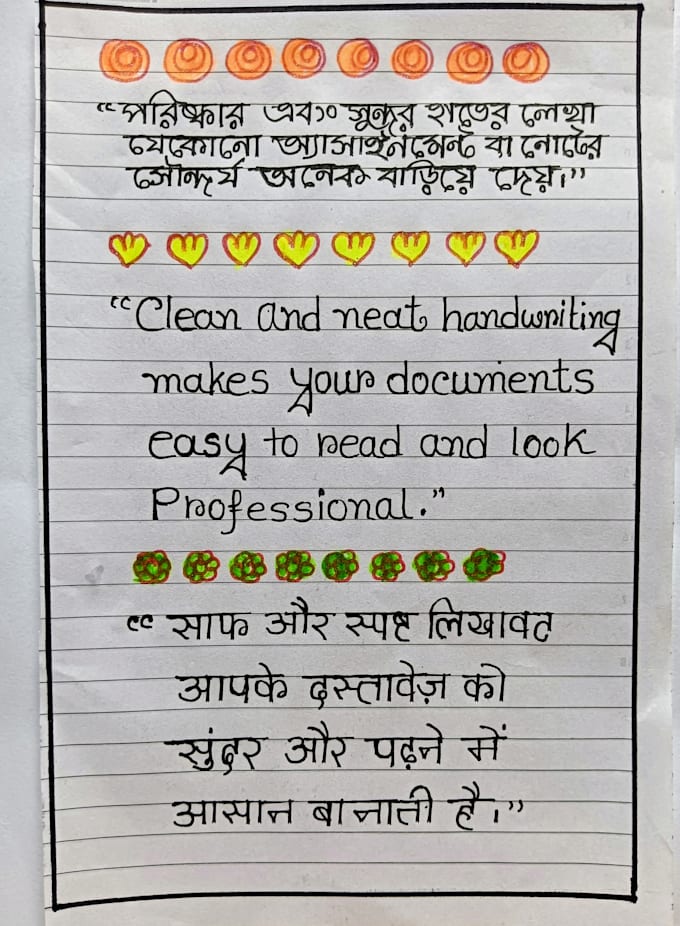 “পরিষ্কার এবং সুন্দর হাতের লেখা
যেকোনো অ্যাসাইনমেন্ট বা নোটের
সৌন্দর্য অনেক বাড়িয়ে দেয়।”
“Clean and neat handwriting
makes your documents
easy to read and look
Professional.”
“ साफ और स्पष्ट लिखावट
आपके दस्तावेज़ को
सुंदर और पढ़ने में
आसान बानाती है।”